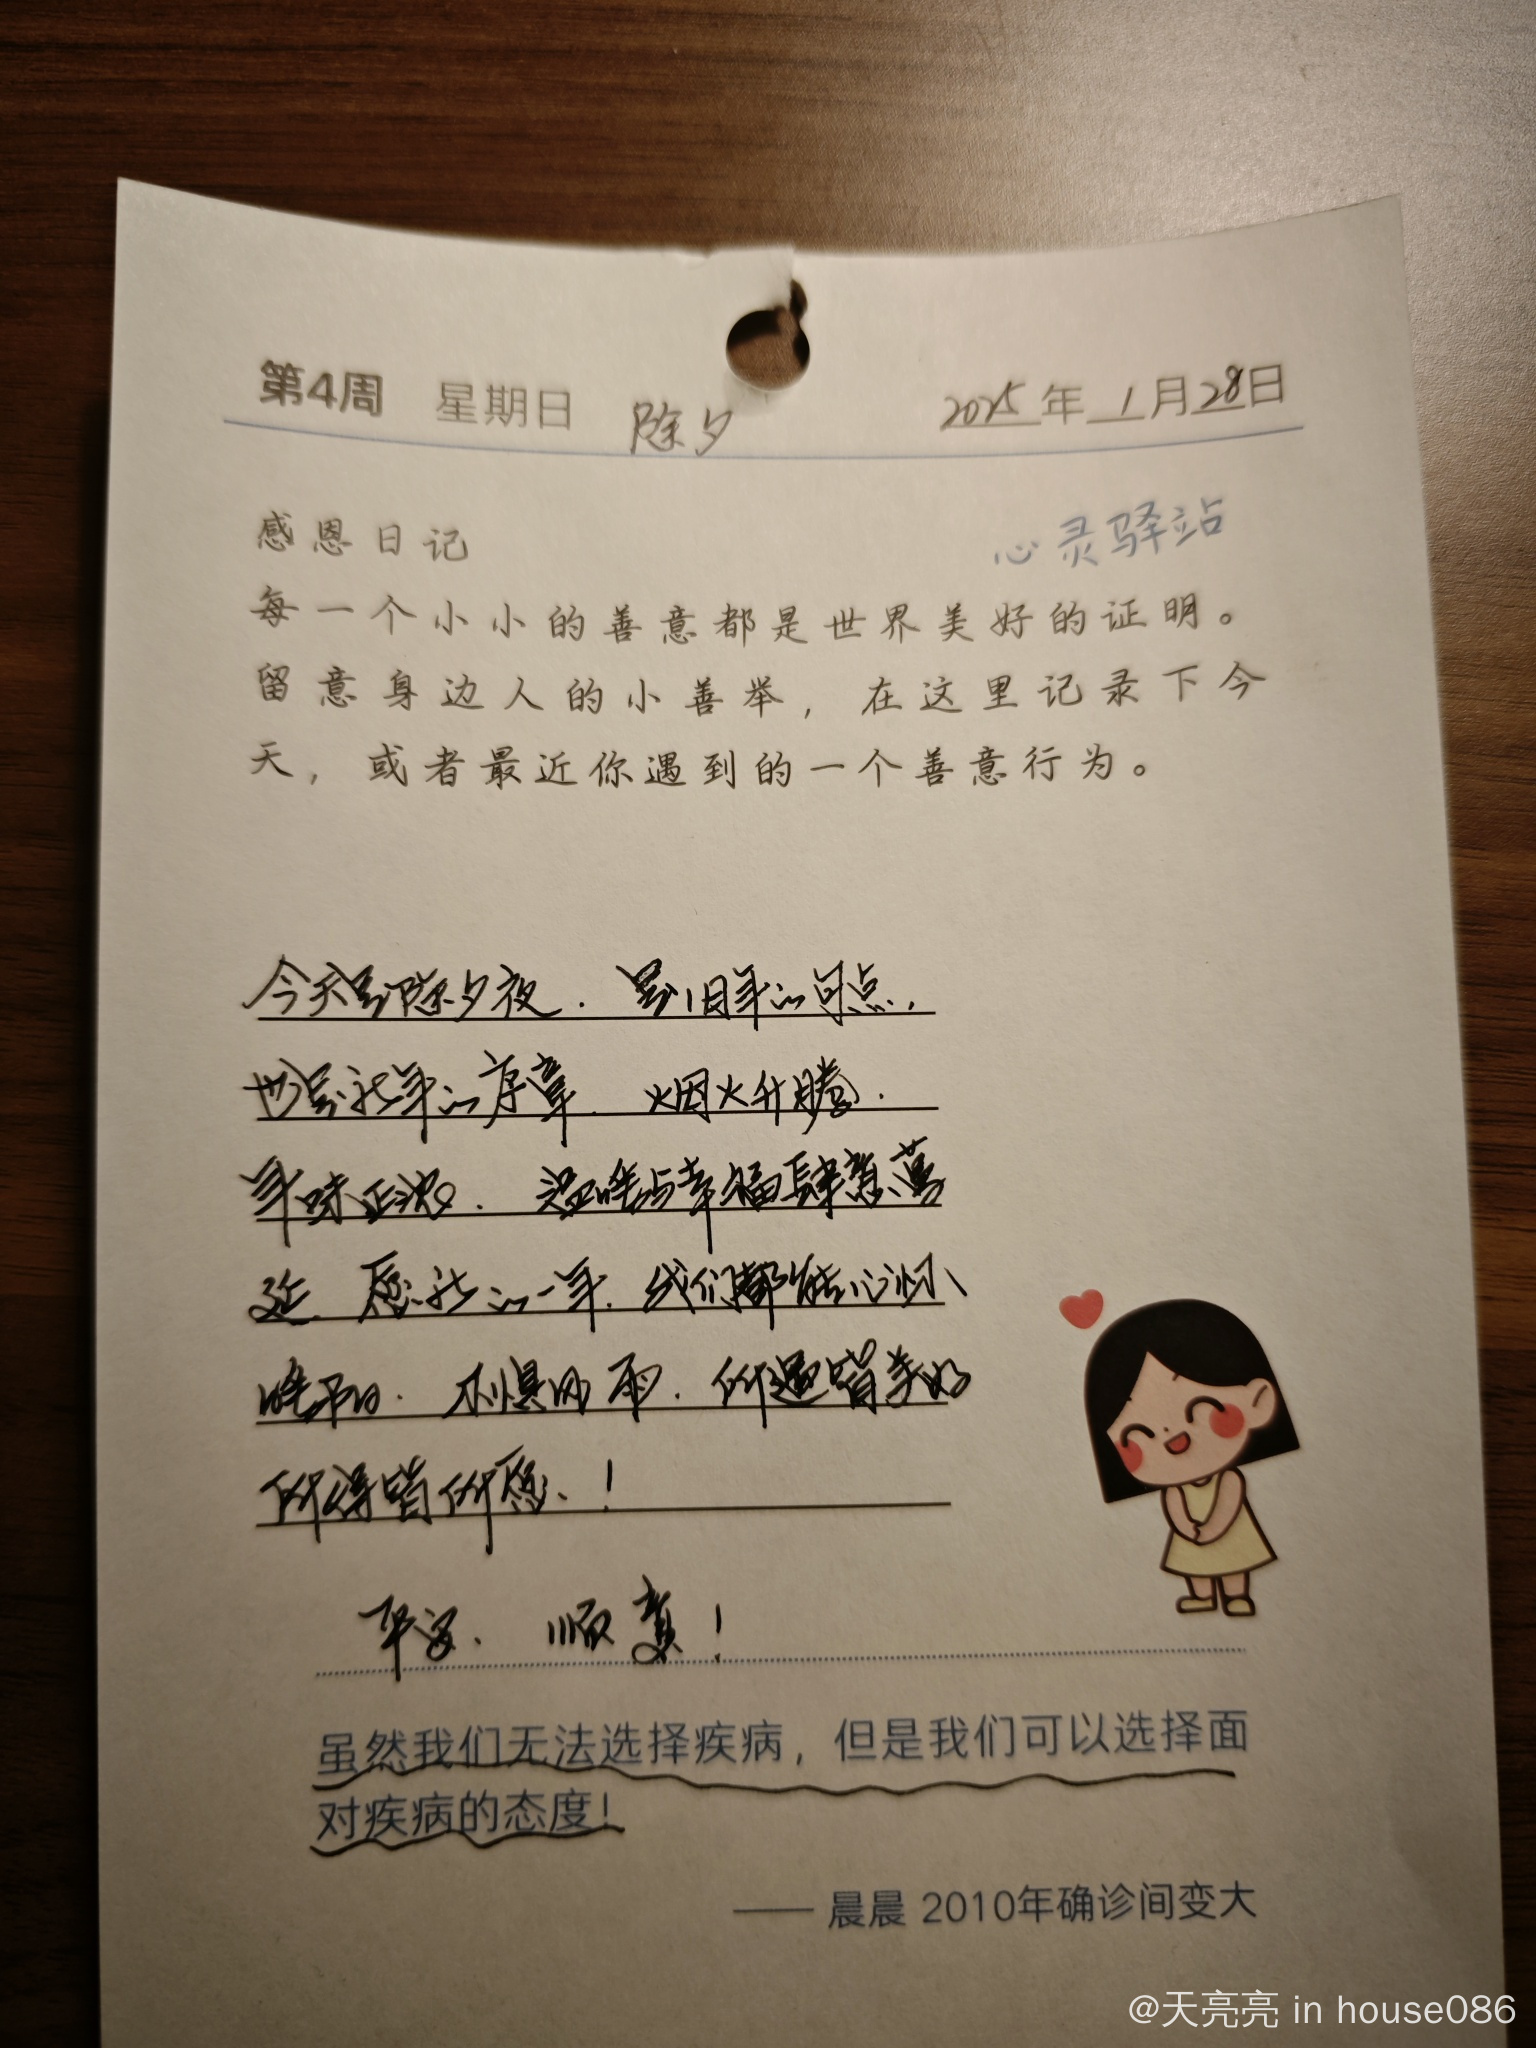 第4周 星期日 除夕 2025年1月28日
感恩日记 心灵驿站
每一个小小的善意都是世界美好的证明。
留意身边人的小善举，在这里记录下今
天，或者最近你遇到的一个善意行为。
今天是除夕夜，是旧年的句点，
也是新年的序章，烟火升腾，
年味正浓，温暖与幸福肆意蔓
延，愿新的一年，我们都能心怀
暖阳，不惧风雨，所遇皆美好
所得皆所愿、！
平安、顺意！
虽然我们无法选择疾病，但是我们可以选择面
对疾病的态度！
—— 晨晨 2010年确诊间变大
@天亮亮 in house086